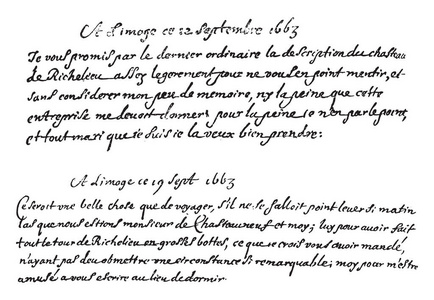 A Limoge ce 12 septembre 1663
Je vous promis par le dernier ordinaire la description du chasteau
de Richelieu assez legerement pour ne vous en point mentir, et
sans considerer mon peu de memoire, ny la peine que cette
entreprise me devoit donner; pour la peine je n'en parle point,
et tout mari que je suis je la veux bien prendre:
A Limoge ce 19 sept 1663
Ce seroit vne belle chose que de voyager, s'il ne se falloit point lever si matin
Las que nous estions monsieur de Chasteauneuf et moy; luy pour avoir fait
tout le tour de Richelieu en grosses bottes, ce que je crois vous avoir mandé,
n'ayant pas deu obmettre vne circonstance si remarquable; moy pour m'estre
amusé a vous escrire au lieu de dormir.